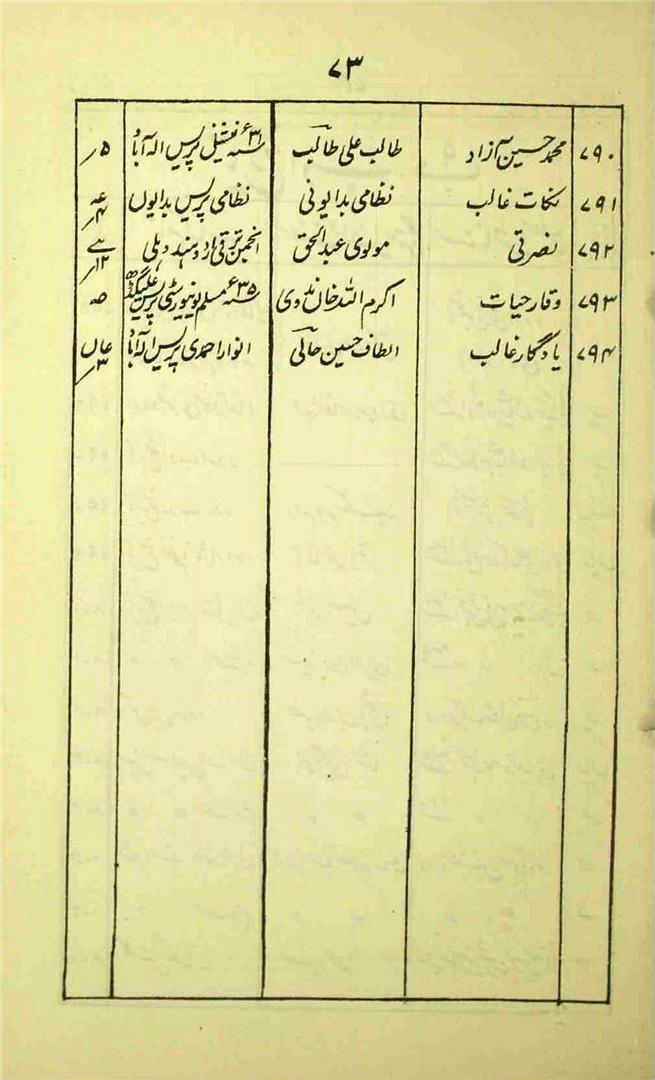 ۷۳
۷۹۰ محمد حسین آزاد طالب علی طالب ۳۱ء نیشنل پریس الہ آباد ۵؍
۷۹۱ نکات غالب نظامی بدایونی نظامی پریس بدایوں
۷۹۲ نصرتی مولوی عبدالحق انجمن ترقی اردو ہند دہلی
۷۹۳ وقار حیات اکرام اللہ خان ندوی ۳۵ء مسلم یونیورسٹی پریس علیگڈھ
۷۹۴ یادگار غالب الطاف حسین حالی انوار احمدی پریس الہ آباد